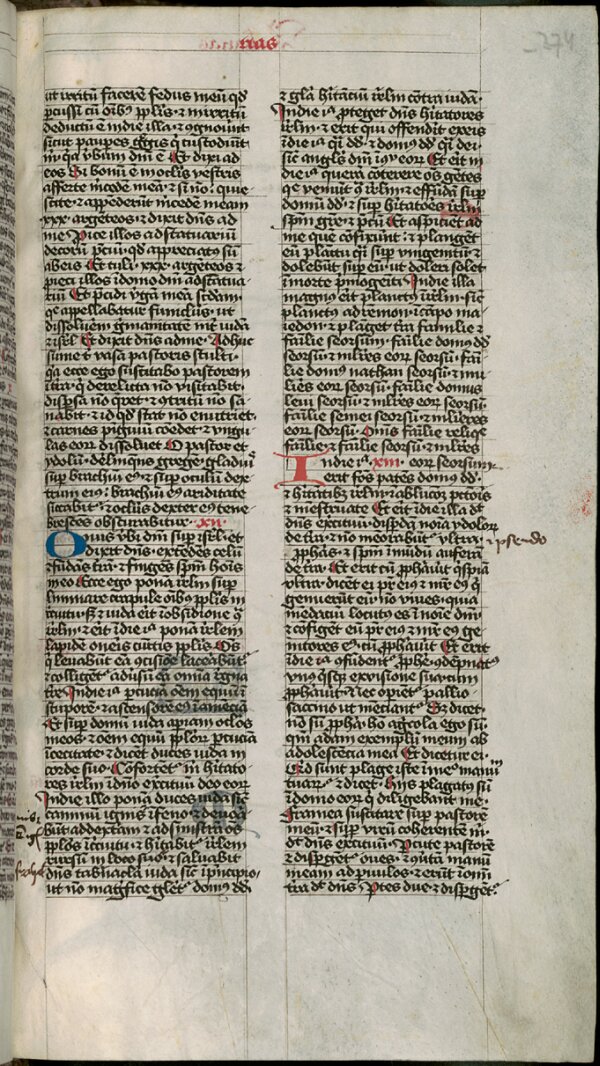 rias
274
ut irritū facerē fedus meū qd̓
pcussi cū oībꝯ pplis · ⁊ ī irritū
deductū ē ī die illa · ⁊ ꝯgnouūt
sicut paupes gregis q̓ custodiūt
m̄ · qa v̓bum dnī ē Et dixi ad
eos Si bonū ē ī oclis vestris
afferte m̄cede meā · ⁊ si nō · quie-
scite · ⁊ appēderūt m̄cede meam
xxx · argēteos · ⁊ dixit dn̄s ad
me Proice illos ad statuariū
decorū p̄ciū · qd̓ appreciatꝯ sū
ab eis Et tuli · xxx · argēteos ⁊
pieci illos ī domo dnī ad statua-
riū Et p̄cidi v̓gā meā scd̓am ·
q̄ appellabatur funiclus · ut
dissoluerem gmanitatē īt̄ iudā
⁊ isr̄l Et dixit dn̄s ad me · Adhuc
sume t̄ vasa pastoris stulti ·
qa ecce ego suscitabo pastorem
ī t̄ra · q̄ derelicta nō visitabit ·
disp̄sa nō q̄ret · ⁊ ꝯtritū nō sa-
nabit · ⁊ id qd̓ stat nō enutriet ·
⁊ carnes pīguiū coedet · ⁊ vngu-
las eoꝝ dissoluet O pastor et
ydolū · delinq̄ns gregē · gladiꝯ
sup̄ brachiū eiꝯ · ⁊ sup̄ oculū dex-
trum eiꝯ : brachiū eiꝯ ariditate
siccabit̄ · ⁊ oclus dexter eiꝯ tene-
brescēs obscurabitur · xii ·
Onus v̓bi dnī sup̄ isr̄l · et
dixit dn̄s · extēdēs celū
⁊ fūdās t̄ra · ⁊ fīngēs spm̄ hoīs
ī eo Ecce ego ponā irl̄m sup̄
liminare crapule oībꝯ pplis ī
circuitu · Sꝫ ⁊ iuda erit ī obsidione ꝯ̄
irl̄m · ⁊ erit ī die iā ponā irl̄em
lapidē oneris cūctis pplis Oēs
q̄ leuabūt eā ꝯcisiōe lacerabūt̄ ·
⁊ colligēt̄ adūsū eā omīa regna
t̄re In die iā pcuciā oēm equū ī
stuporē · ⁊ ascensorē eiꝯ ī amēciā
Et sup̄ domū iuda apiam oclos
meos · ⁊ oēm equū pploꝝ pcuciā
ī cecitate · ⁊ dicēt duces iuda ī
corde suo · Cofortēt̄ m̄ hitato-
res irl̄m ī dnō exercituū deo eoꝝ
In die illo ponā duces iuda sic̄
caminū ignis ī feno · ⁊ deuora-
būt ad dextam ⁊ ad sinistrā oēs
pplos ī circuitu · ⁊ hitabit̄ irl̄em
rursū ī loco suo · ⁊ saluabit
dn̄s tabn̄acla iuda sic̄ ī principio ·
ut nō magīfice glet̄ domꝯ dd̄ ·
⁊ gla hitāciū irl̄m cōtra iudā ·
In die iā pteget dn̄s hitatores
irl̄m · ⁊ erit qui offendit̄ ex eis
ī die iā q̄si dd̄ · ⁊ domꝯ dd̄ q̄si dei
sic̄ angls dnī ī ꝯspū eoꝝ Et erit ī
die iā querā cōterere oēs gētes
q̄ veniūt ꝯ̄ irl̄m · ⁊ effūdā sup̄
domū dd̄ · ⁊ sup̄ hitatoēs irl̄m
spm̄ grē · ⁊ pcū Et aspiciet ad
me quē cōfixūt : ⁊ plangēt
eū plāctu q̄si sup̄ vnigenitū · ⁊
dolebūt sup̄ eū · ut doleri solet
ī morte p̄mogēiti In die illa
magnꝯ erit plāctꝯ ī irl̄m · sic̄
plāctꝯ adremon · ī cāpo ma-
iedon · ⁊ plāget t̄ra familie ⁊
fāilie seorsum · fāilie domꝯ dd̄
seorsū · ⁊ ml̄ires eoꝝ seorsū · fāi-
lie domꝯ nathan seorsū · ⁊ mu-
liēs eoꝝ seorsū · fāilie domus
leui seorsū · ⁊ ml̄ires eoꝝ seorsū
fāilie semei seorsū · ⁊ ml̄ieres
eoꝝ seorsū · Omīs fāilie reliq̄e
fāilie · ⁊ fāilie seorsū · ⁊ ml̄ires
In die iā · xiii · eoꝝ seorsum ·
erit fōs patēs domꝯ dd̄ ·
⁊ hitātibꝯ irl̄m · ī ablucōꝫ pctōris
⁊ mēstruate Et erit ī die illa d̄t
dn̄s exercituū · dispdā noīa ydoloꝝ
de t̄ra · ⁊ nō meōrabūt̄ vltra · ⁊
pseudo
pphas · ⁊ spm̄ īmūdū auferā
de t̄ra · Et erit cū pphauit̄ q̄spiā
vltra · dicēt ei pr̄ eiꝯ ⁊ mr̄ eiꝯ q̄
genuerūt eū · nō viues · quia
mēdaciū locutꝯ es ī noīe dnī ·
⁊ cōfigēt eū pr̄ eiꝯ ⁊ mr̄ eiꝯ ge-
nitores eiꝯ cū pphauit̄ Et erit
ī die iā ꝯfūdent̄ pphe · ꝯdēpnatꝯ
vnꝯ q̄sqꝫ ex visione sua cum
pphauit̄ · Nec opiēt̄ pallio
saccino ut mēciant̄ · Sꝫ dicet ·
nō sū ppha · hō ag̓cola ego sū ·
qm̄ adam exemplū meum ab
adolescētia mea Et dicet̄ ei ·
Qid sunt plage iste ī meꝯ manuū
tuaꝝ · ⁊ dicet · Hiis plagatꝯ sū
ī domo eoꝝ q̄ diligebant me ·
Framea suscitare sup̄ pastorē
meū · ⁊ sup̄ virū coherente m̄ ·
d̄t dn̄s exercituū · Pcute pastorē
⁊ dispget̄ oues · ⁊ ꝯūtā manū
meam ad puulos · ⁊ erūt ī omī
t̄ra d̄t dn̄s Ptes due · ⁊ dispget̄ ·